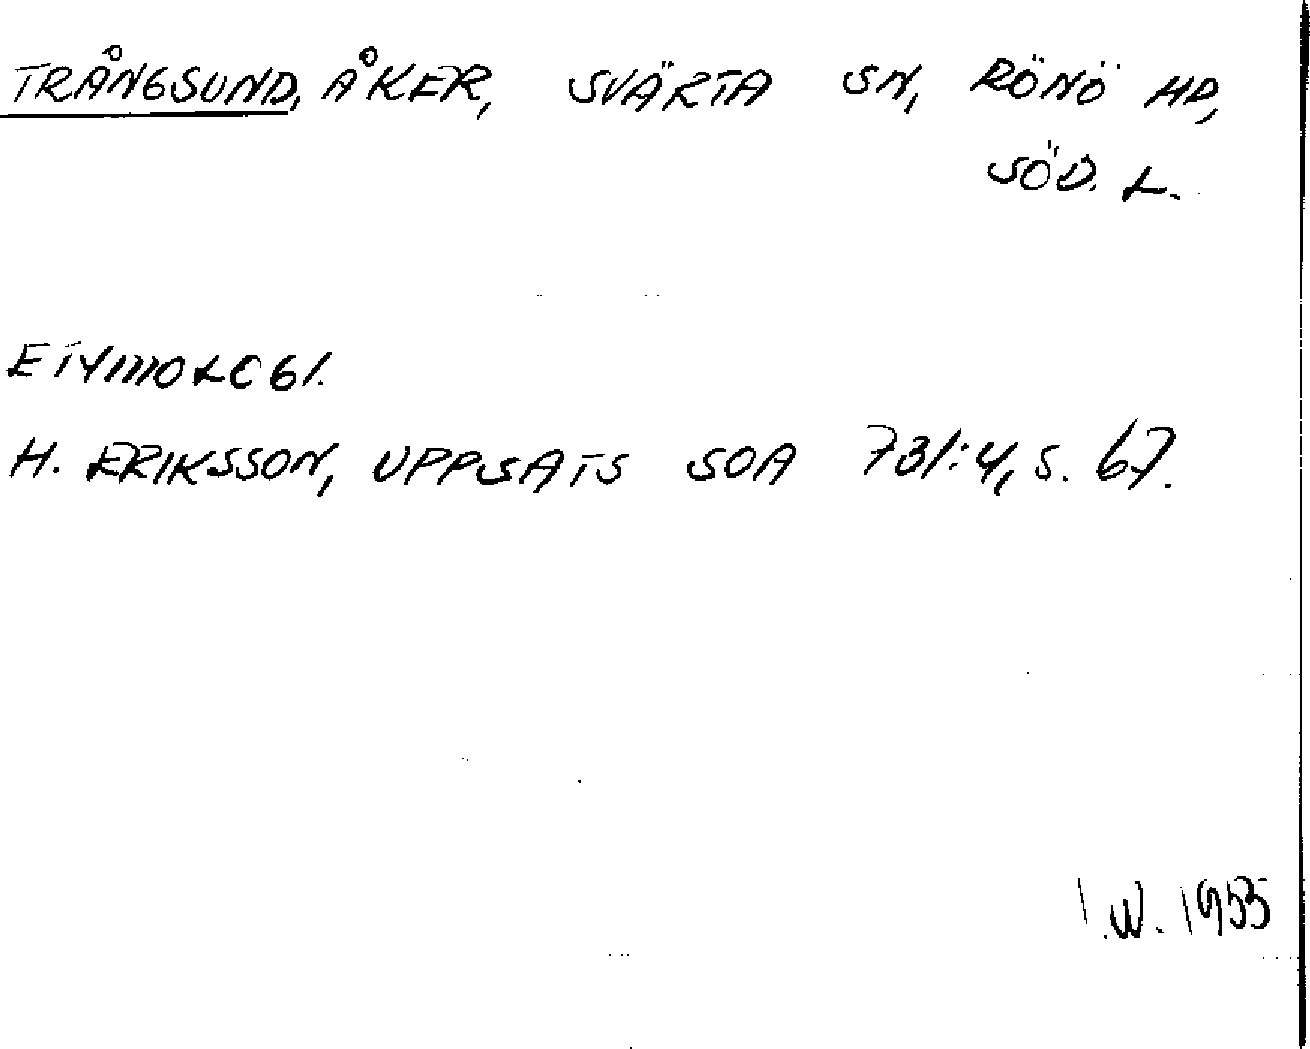 TRÅNGSUND, ÅKER, SVÄRTA SN, RÖNÖ HD,
SÖD. L.
ETYMOLOGI.
H. ERIKSSON, UPPSATS SOA 731:4, S. 67.
I.W. 1955